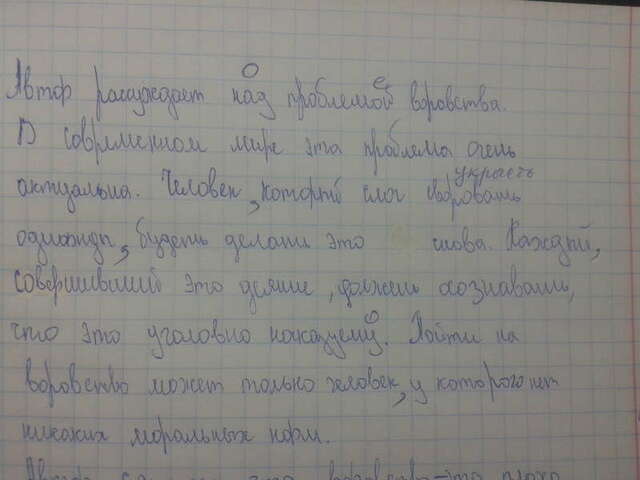 Автор рассуждает над проблемой воровства.
В современном мире эта проблема очень
украсть
актуальна. Человек, который смог своровать
однажды, будет делать это снова. Каждый,
совершивший это деяние, должен осознавать,
что это уголовно наказуемо. Пойти на
воровство может только человек, у которого нет
никаких моральных норм.
Автор что воровство - это плохо